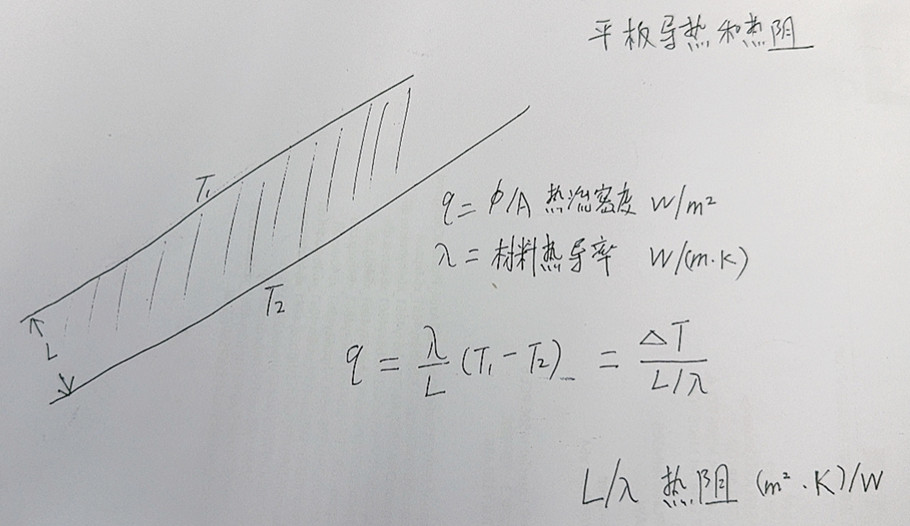 平板导热和热阻
T₁
q = φ/A 热流密度 W/m²
λ = 材料热导率 W/(m·K)
T₂
L
q = λ/L (T₁ - T₂) = ΔT/(L/λ)
L/λ 热阻 (m²·K)/W